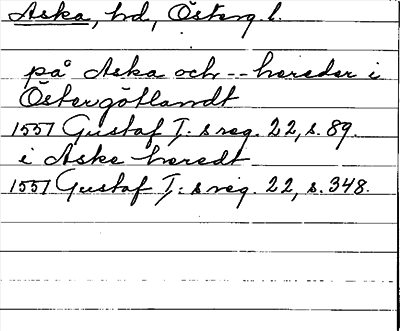 Aska, hd, Österg. l.
på Aska och -- hereder i
Östergötlandt
1557 Gustaf I: s reg. 22, s. 89.
i Aske heredt
1557 Gustaf I: s reg. 22, s. 348.